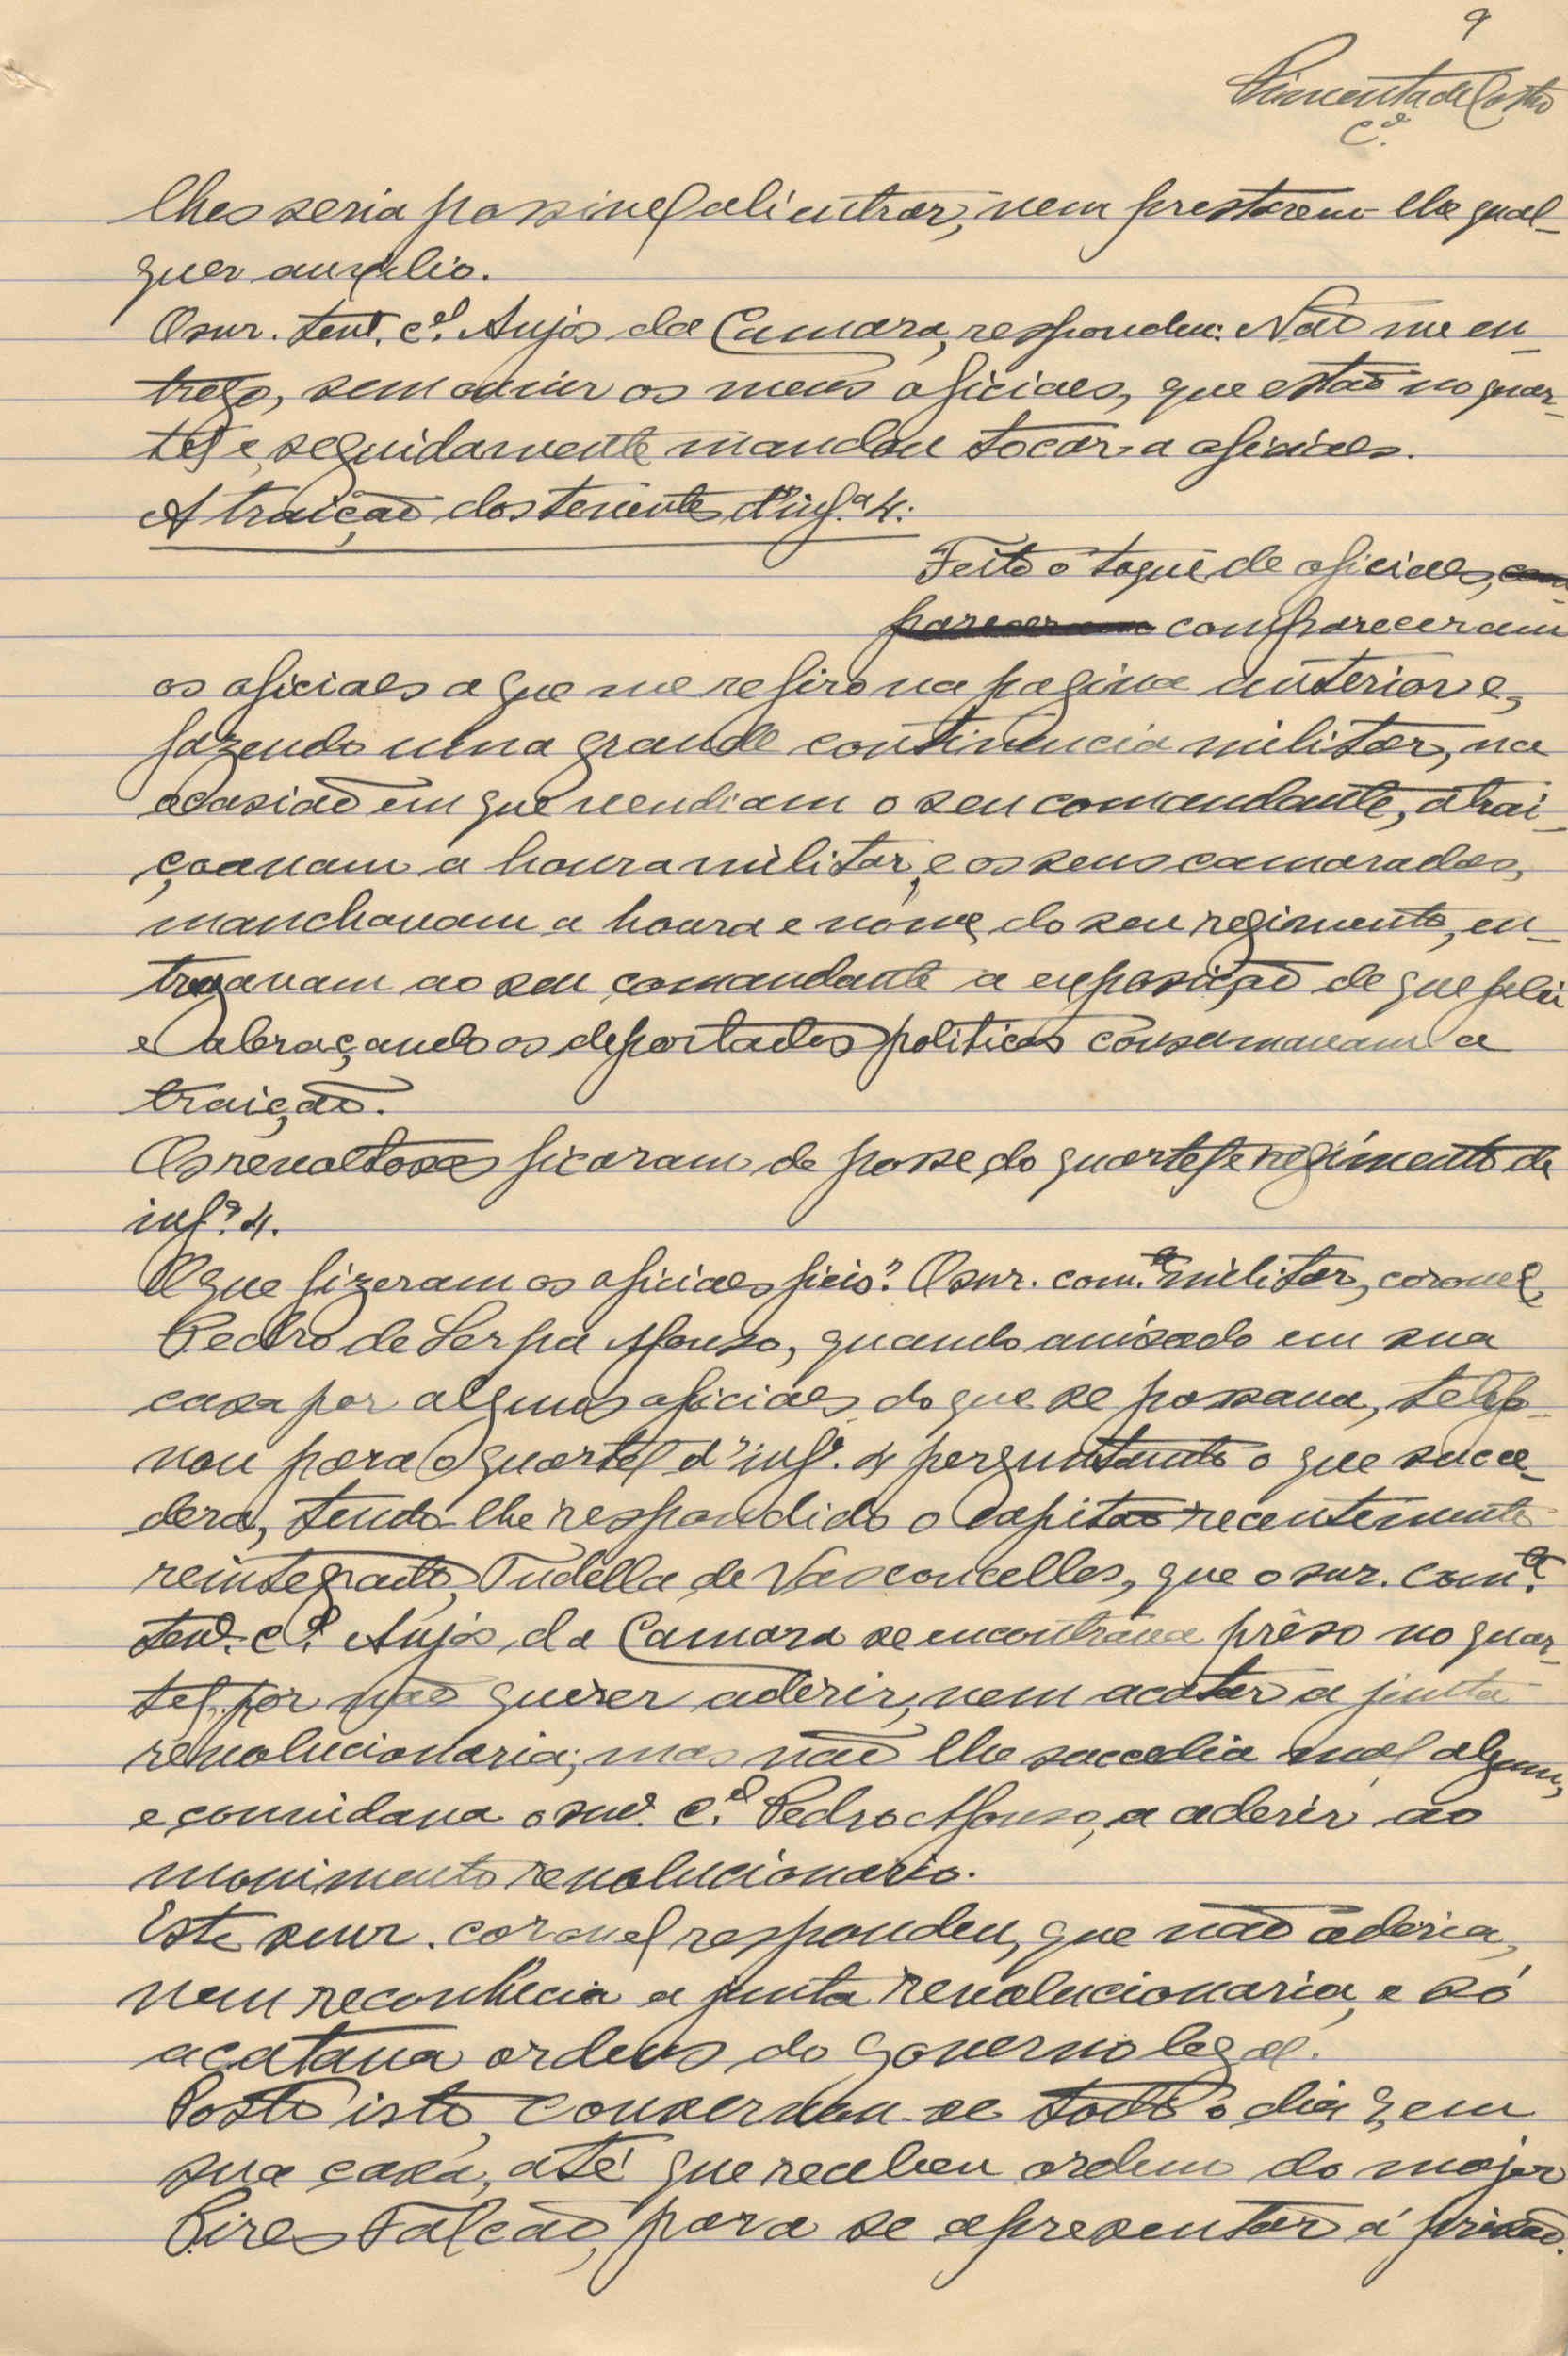 9
Pimenta de Castro
C.el
lhes seria possivel ali entrar, nem prestarem-lhe qual-
quer auxilio.
O snr. tent. c.el Anjos da Camara, respondeu: Não me en-
trego, sem ouvir os meus oficiaes, que estão no quar-
tel e, seguidamente mandou tocar a oficiaes.
A traição dos tenentes d'inf.a 4:
Feito o toque de oficiaes, com-
pareceram compareceram
os oficiaes a que me refiro na pagina anterior e,
fazendo uma grande continencia militar, na
ocasião em que vendiam o seu comandante, atrai-
çoavam a honra militar, e os seus camaradas,
manchavam a honra e nome do seu regimento, en-
tregavam ao seu comandante a exposição de que falei
e abraçando os deportados politicos consumavam a
traição.
Os revoltosos ficaram de posse do quartel e regimento de
inf.a 4.
O que fizeram os oficiaes fieis? O snr. com.te militar, coronel,
Pedro de Serpa Afonso, quando avisado em sua
casa por alguns oficiaes do que se passava, telefo-
nou para o quartel d'inf.a 4 perguntando o que suce-
dera, tendo-lhe respondido o capitão recentemente
reintegrado, Tudella de Vasconcellos, que o snr. com.te
tent. c.el Anjos da Camara se encontrava prêso no quar-
tel, por não querer aderir, nem acatar a junta
revolucionaria; mas não lhe sucedia mal algum,
e convidava o snr. c.el Pedro Afonso, a aderir ao
movimento revolucionario.
Este snr. coronel respondeu, que não aderia,
nem reconhecia a junta revolucionaria, e só
acatava ordens do governo legal.
Posto isto, conservou-se todo o dia 7, em
sua casa, até que recebeu ordem do major
Pires Falcão, para se apresentar á prisão.